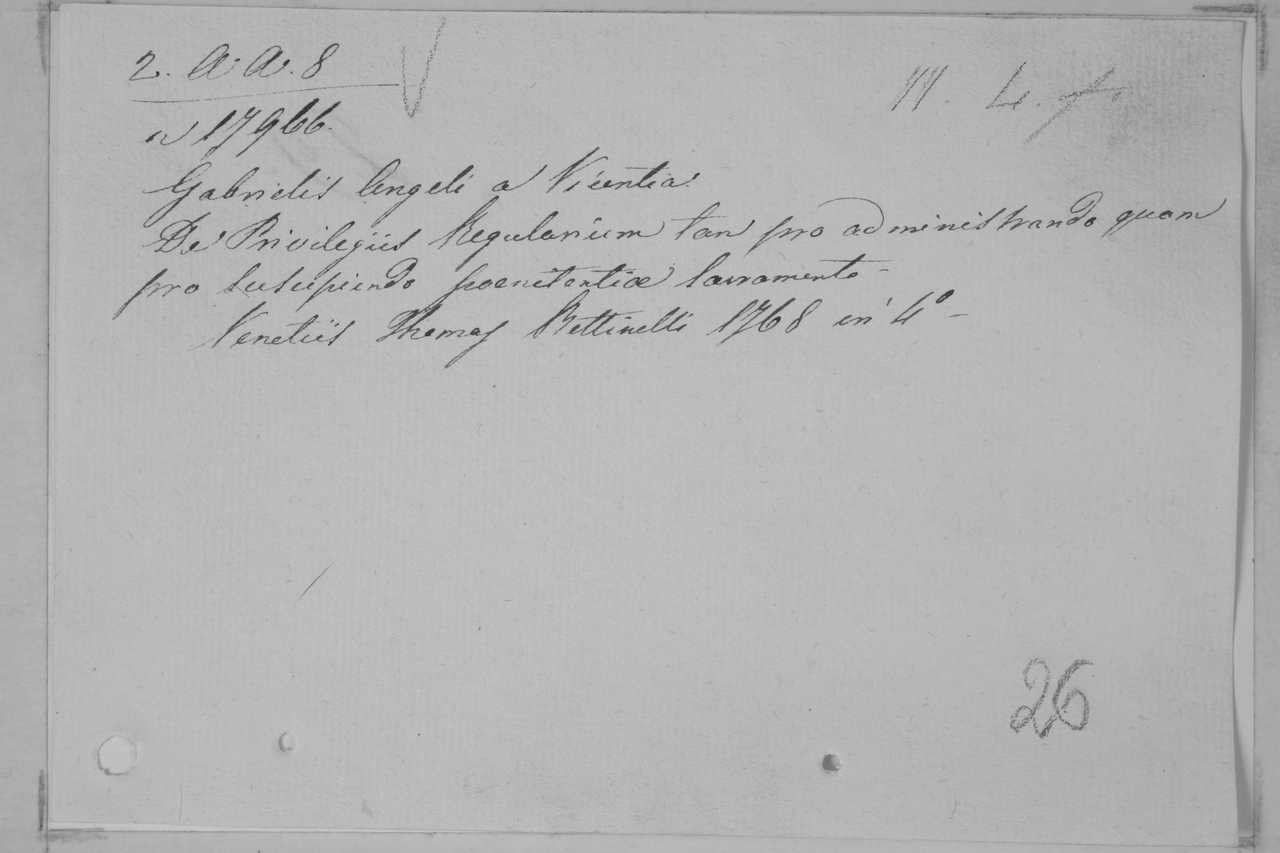 2. A. A. 8
n 17966.
Gabrielis Angeli a Vicentia.
De Privilegiis Regularium tam pro administrando quam
pro suscipiendo poenitentiæ Sacramento -
Venetiis Thomas Bettinelli 1768 in 4º -
26